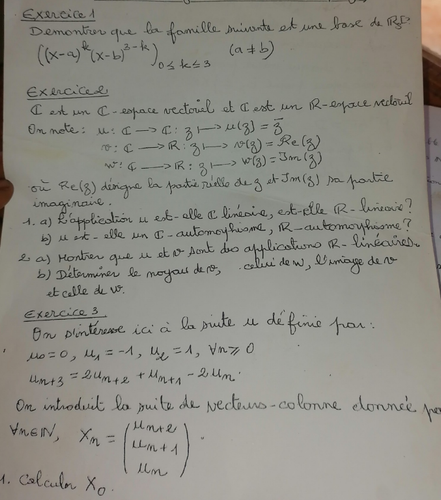 Exercice 1
Demontrer que la famille suivante est une base de
((x-a)^k (x-b)^{3-k})_{0≤k≤3} (a≠b)
Exercice 2
ℂ est un ℂ-espace vectoriel et ℂ est un ℝ-espace vectoriel
On note : u: ℂ → ℂ : z ↦ u(z) = z̄
v: ℂ → ℝ : z ↦ v(z) = Re(z)
w: ℂ → ℝ : z ↦ w(z) = Im(z)
où Re(z) désigne la partie réelle de z et Im(z) sa partie
imaginaire.
1. a) L'application u est-elle ℂ linéaire, est-elle ℝ-linéaire?
b) u est-elle un ℂ-automorphisme, ℝ-automorphisme?
2. a) Montrer que u et v sont des applications ℝ-linéaires.
b) Déterminer le noyau de v, celui de w, l'image de v
et celle de w.
Exercice 3
On s'intéresse ici à la suite u définie par:
u₀=0, u₁=-1, u₂=1, ∀n≥0
u_{n+3} = 2u_{n+2} + u_{n+1} - 2u_n.
On introduit la suite de vecteurs-colonne donnée
∀n∈ℕ, X_n = (u_{n+2}
u_{n+1}
u_n).
1. Calculer X₀